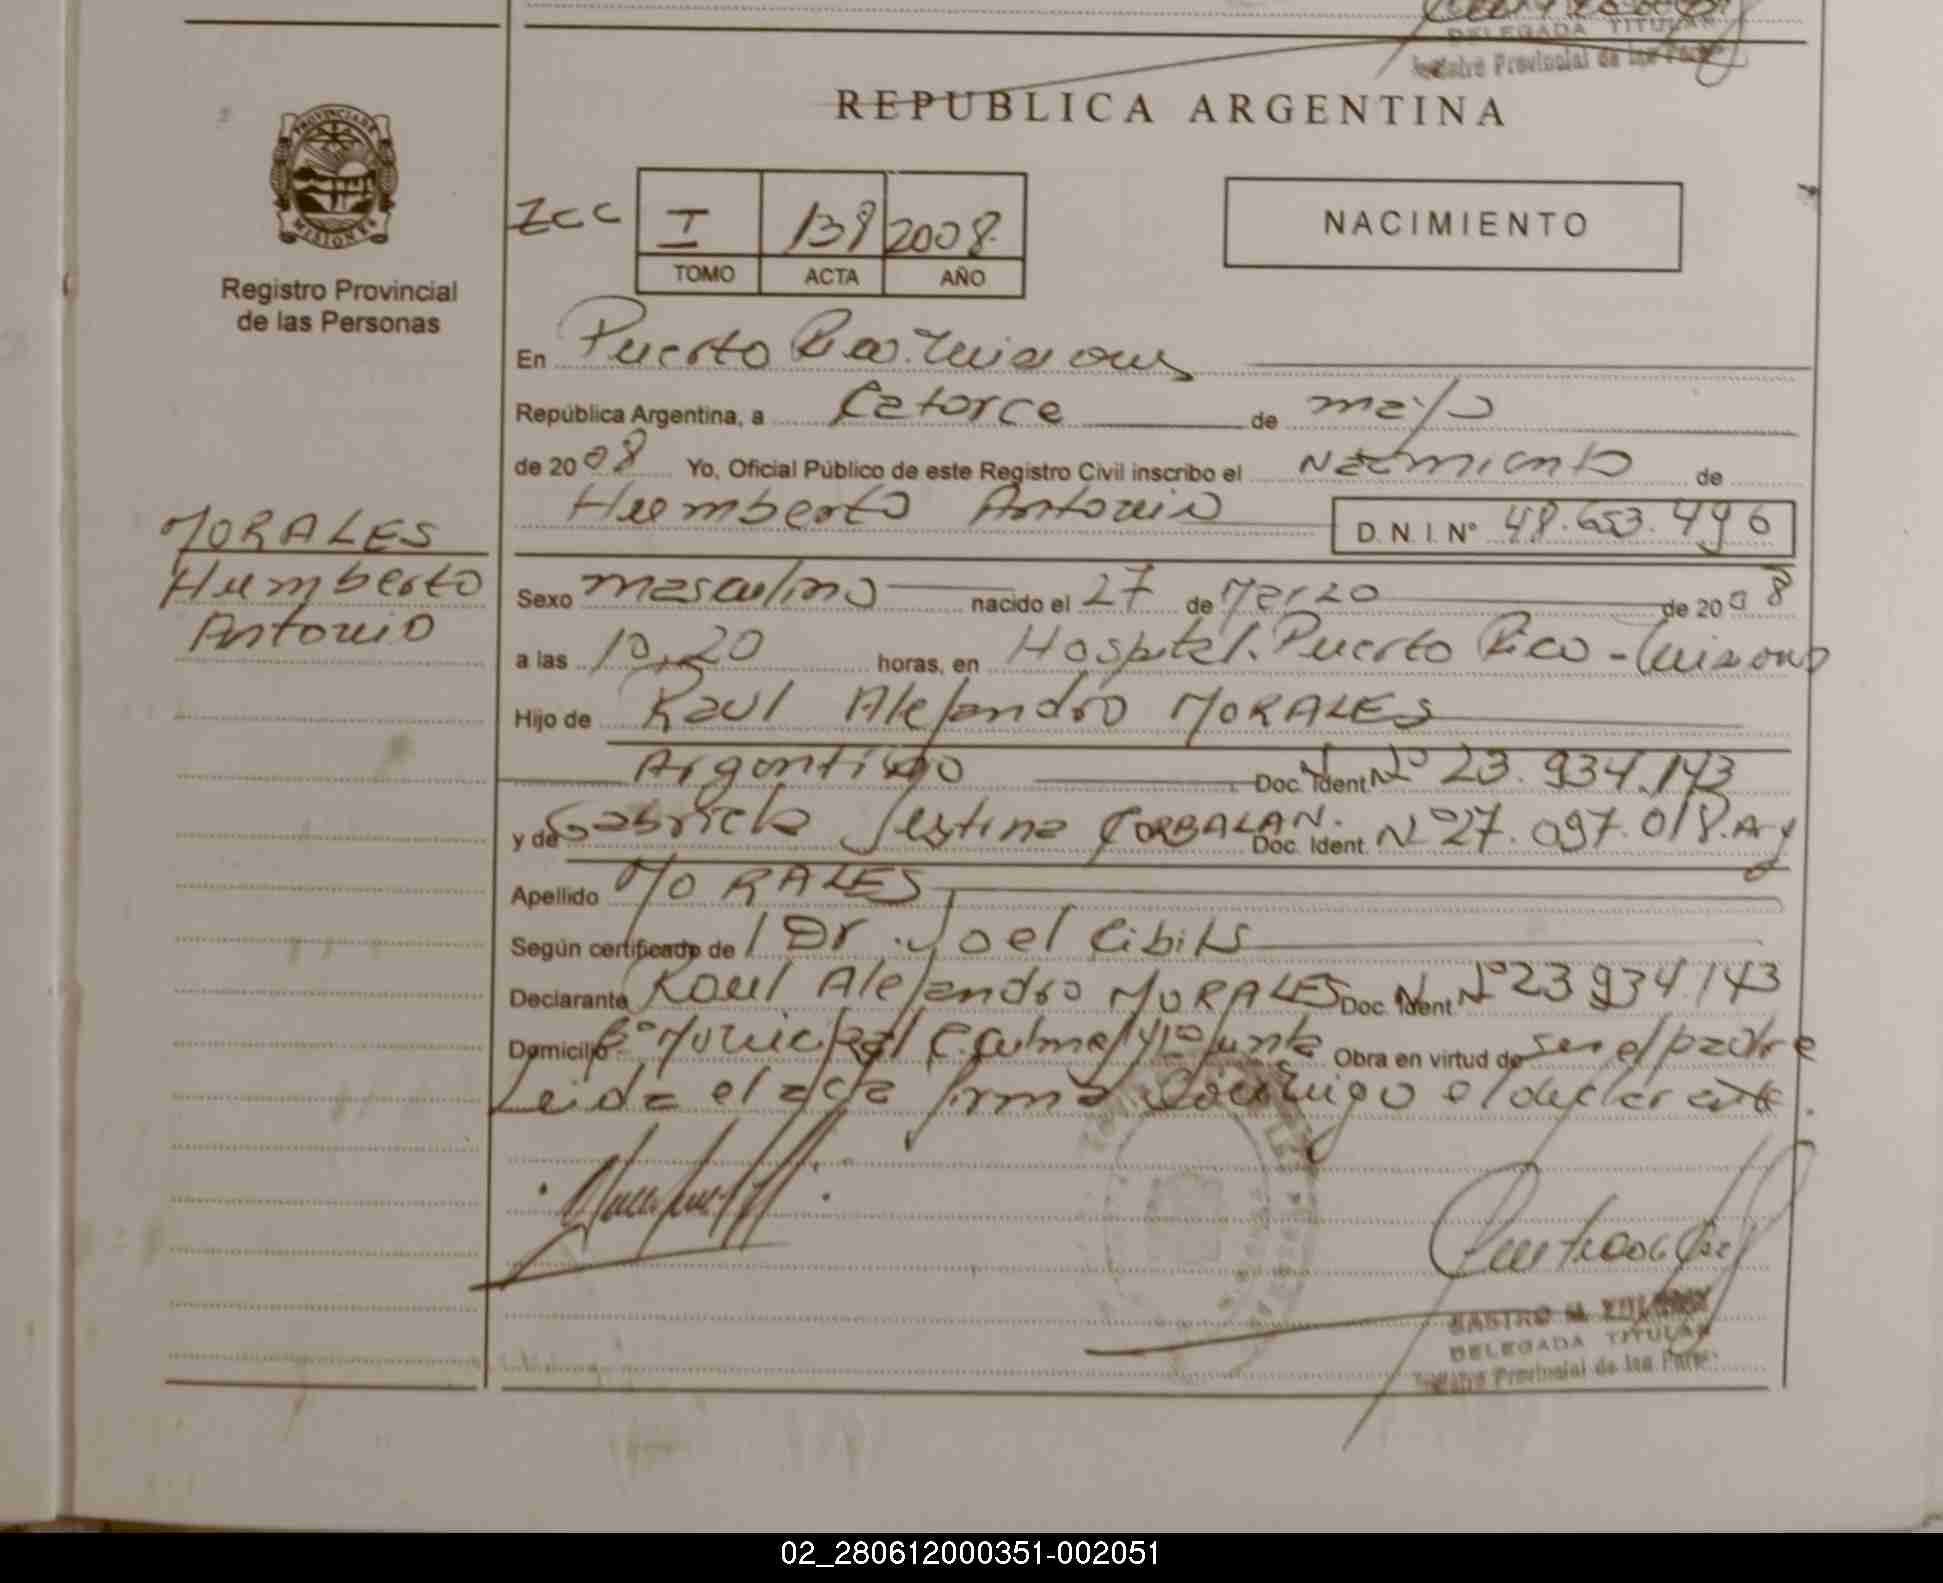 DELEGADA TITULAR
Registro Provincial de las Pers
REPUBLICA ARGENTINA
PROVINCIA DE
MISIONES
Registro Provincial
de las Personas
ZCC I 139 2008
TOMO ACTA AÑO
NACIMIENTO
En Puerto Rico. Misiones
República Argentina, a Catorce de mayo
de 2008 Yo, Oficial Público de este Registro Civil inscribo el Nacimiento de
Humberto Antonio D.N.I. Nº 48.653.496
MORALES
Humberto
Antonio
Sexo masculino nacido el 27 de Marzo de 2008
a las 10,20 horas, en Hospital. Puerto Rico - Misiones
Hijo de Raul Alejandro MORALES
Argentino Doc. Ident Nº 23.934.143
y de Gabriela Justina CORBALAN. Doc. Ident. Nº 27.097.018. Arg
Apellido MORALES
Según certificado de Dr. Joel Cibils
Declarante Raul Alejandro MORALES Doc. Ident Nº 23 934.143
Domicilio Bº Municipal Obra en virtud de ser el padre
Leida el acta firma conmigo el declarante.
CASTRO M.
DELEGADA TITULAR
Registro Provincial de las Pers
02_280612000351-002051